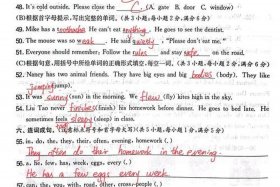 48. It's cold outside. Please close the C. (A. gate B. door C. window)
(B)根据首字母提示,写出完整的单词。(共3小题;每小题2分,满分6分)
49. Mike has a toothache. He can't eat anything. He goes to see the dentist.
50. The mouse was so weak. He said quietly, "Please don't eat me."
51. Everyone should remember: Follow the rules and stay safe on the road.
(C)根据句意,用括号中所给单词的正确形式填空,每空一词。
52. Nancy has two animal friends. They have big eyes and big bodies (body). They like
jumping (jump).
53. It was sunny (sun) in the morning. We flew (fly) kites high in the sky.
54. Liu Tao never finishes (finish) his homework before dinner. He goes to bed late. He
sometimes feels sleepy (sleep) in class.
六、连词成句。(共5小题;每小题2分,满分
55. they, often, do, their, homework, in, the, evening
They often do their homework in the evening.
56. a, he, few, has, week, eggs, every (.)
He has a few eggs every week.
57. the, you, with, road, other, cross, people